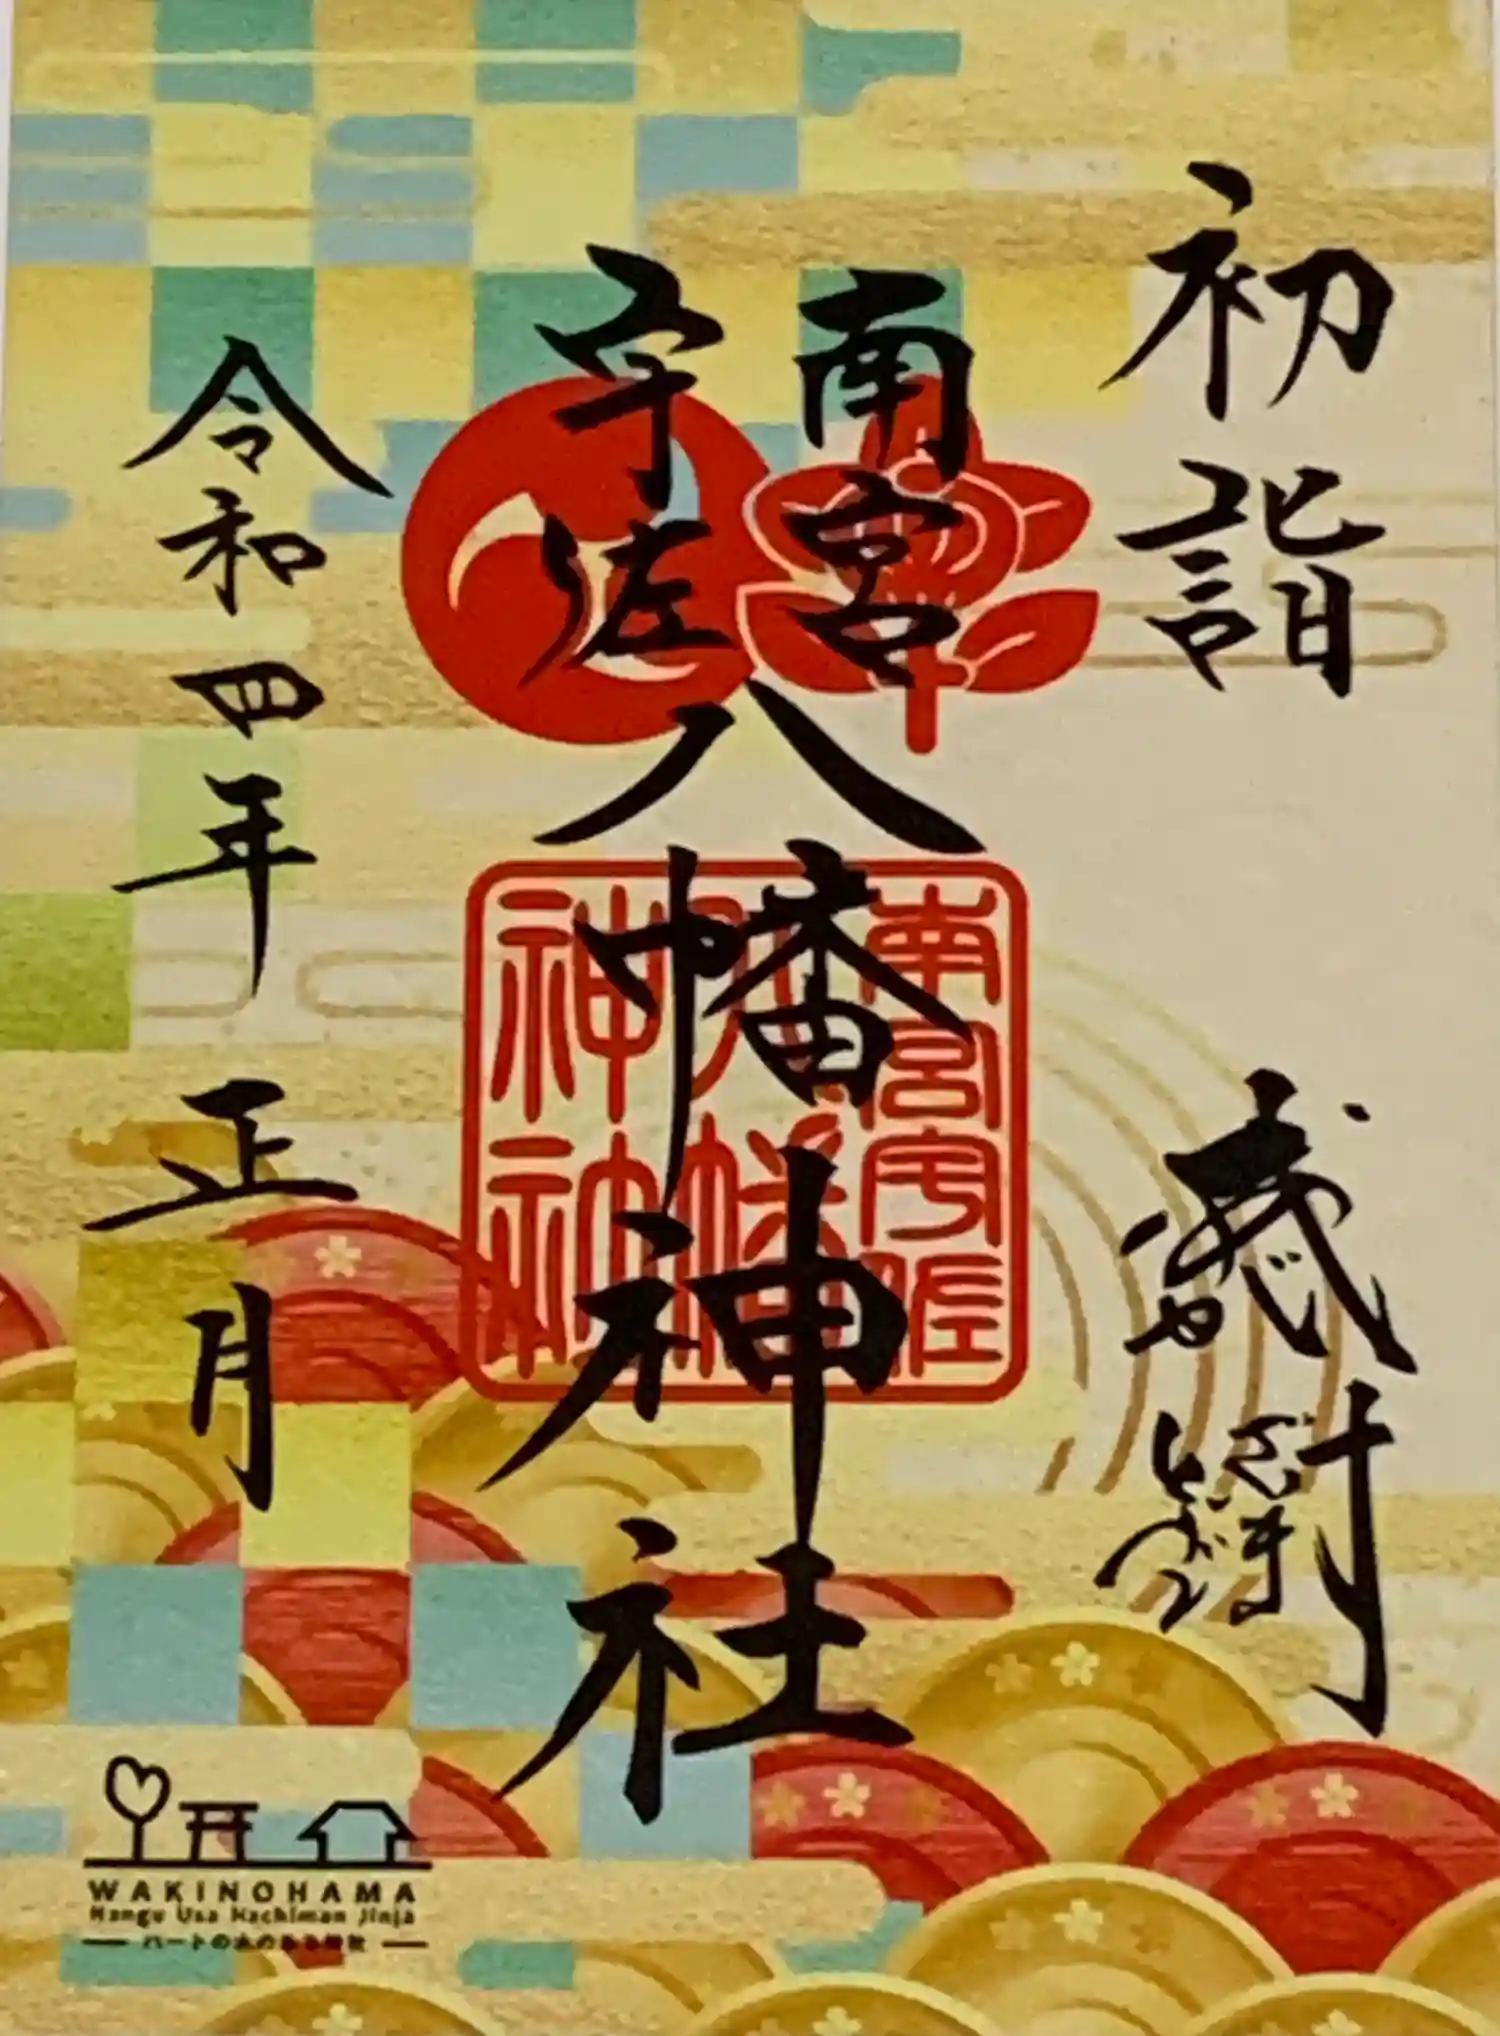 初詣
南宮
宇佐
八幡神社
令和四年 正月
南宮宇佐
八幡
神社
WAKINOHAMA
Nangu Usa Hachiman Jinja
ハートの木のある神社